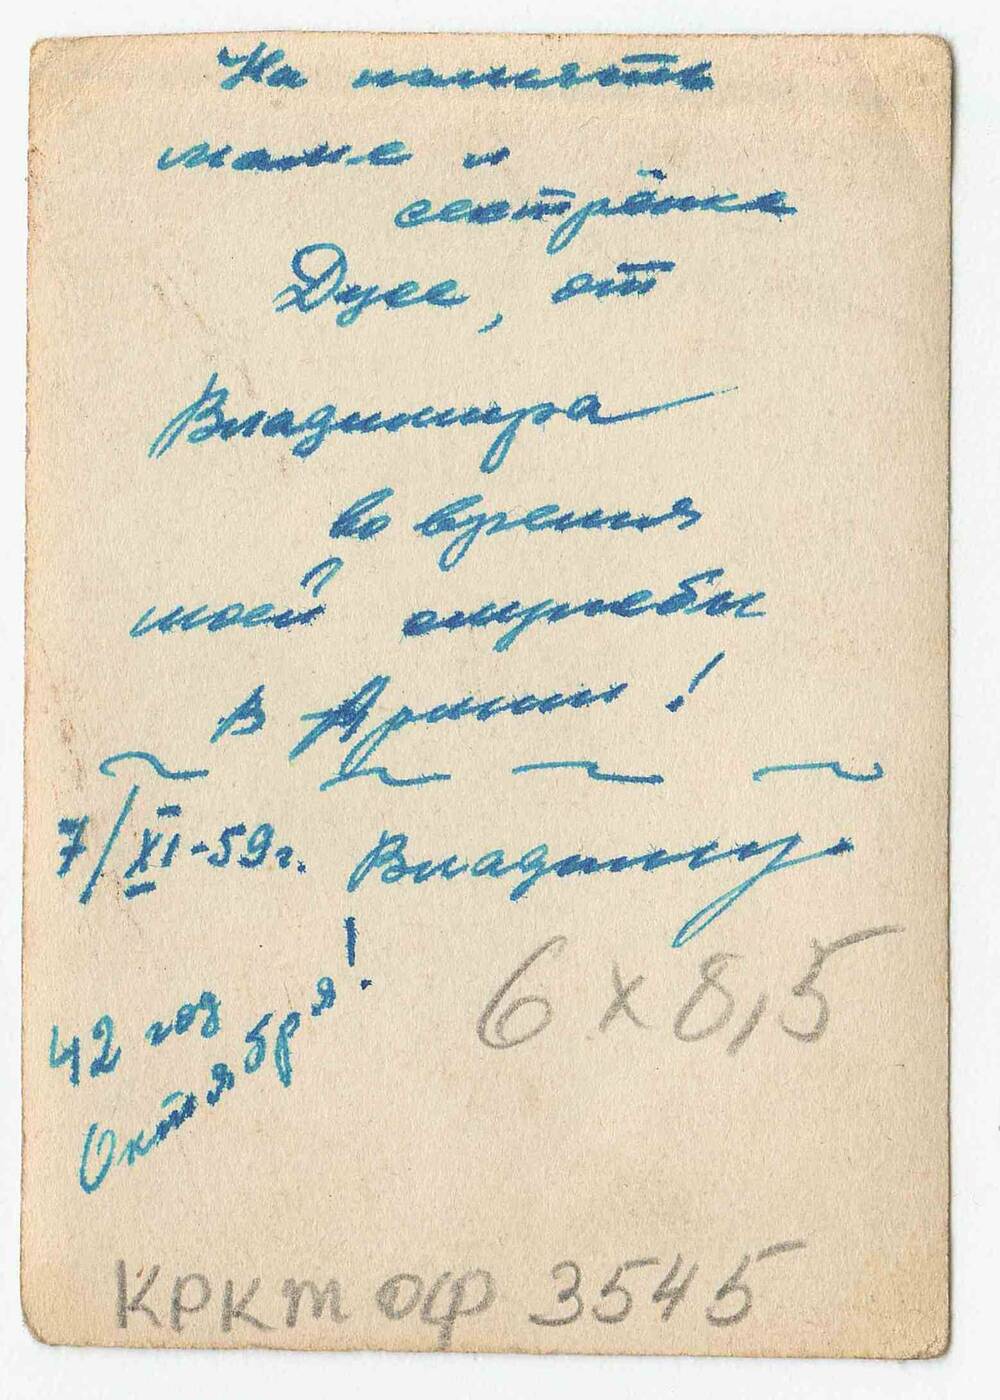 На память
маме и
сестрёнке
Дусе, от
Владимира
во время
моей службы
в Армии!
7/XI-59г. Владимир
42 год
Октября!
6 x 8,5
КРКМ ОФ 3545